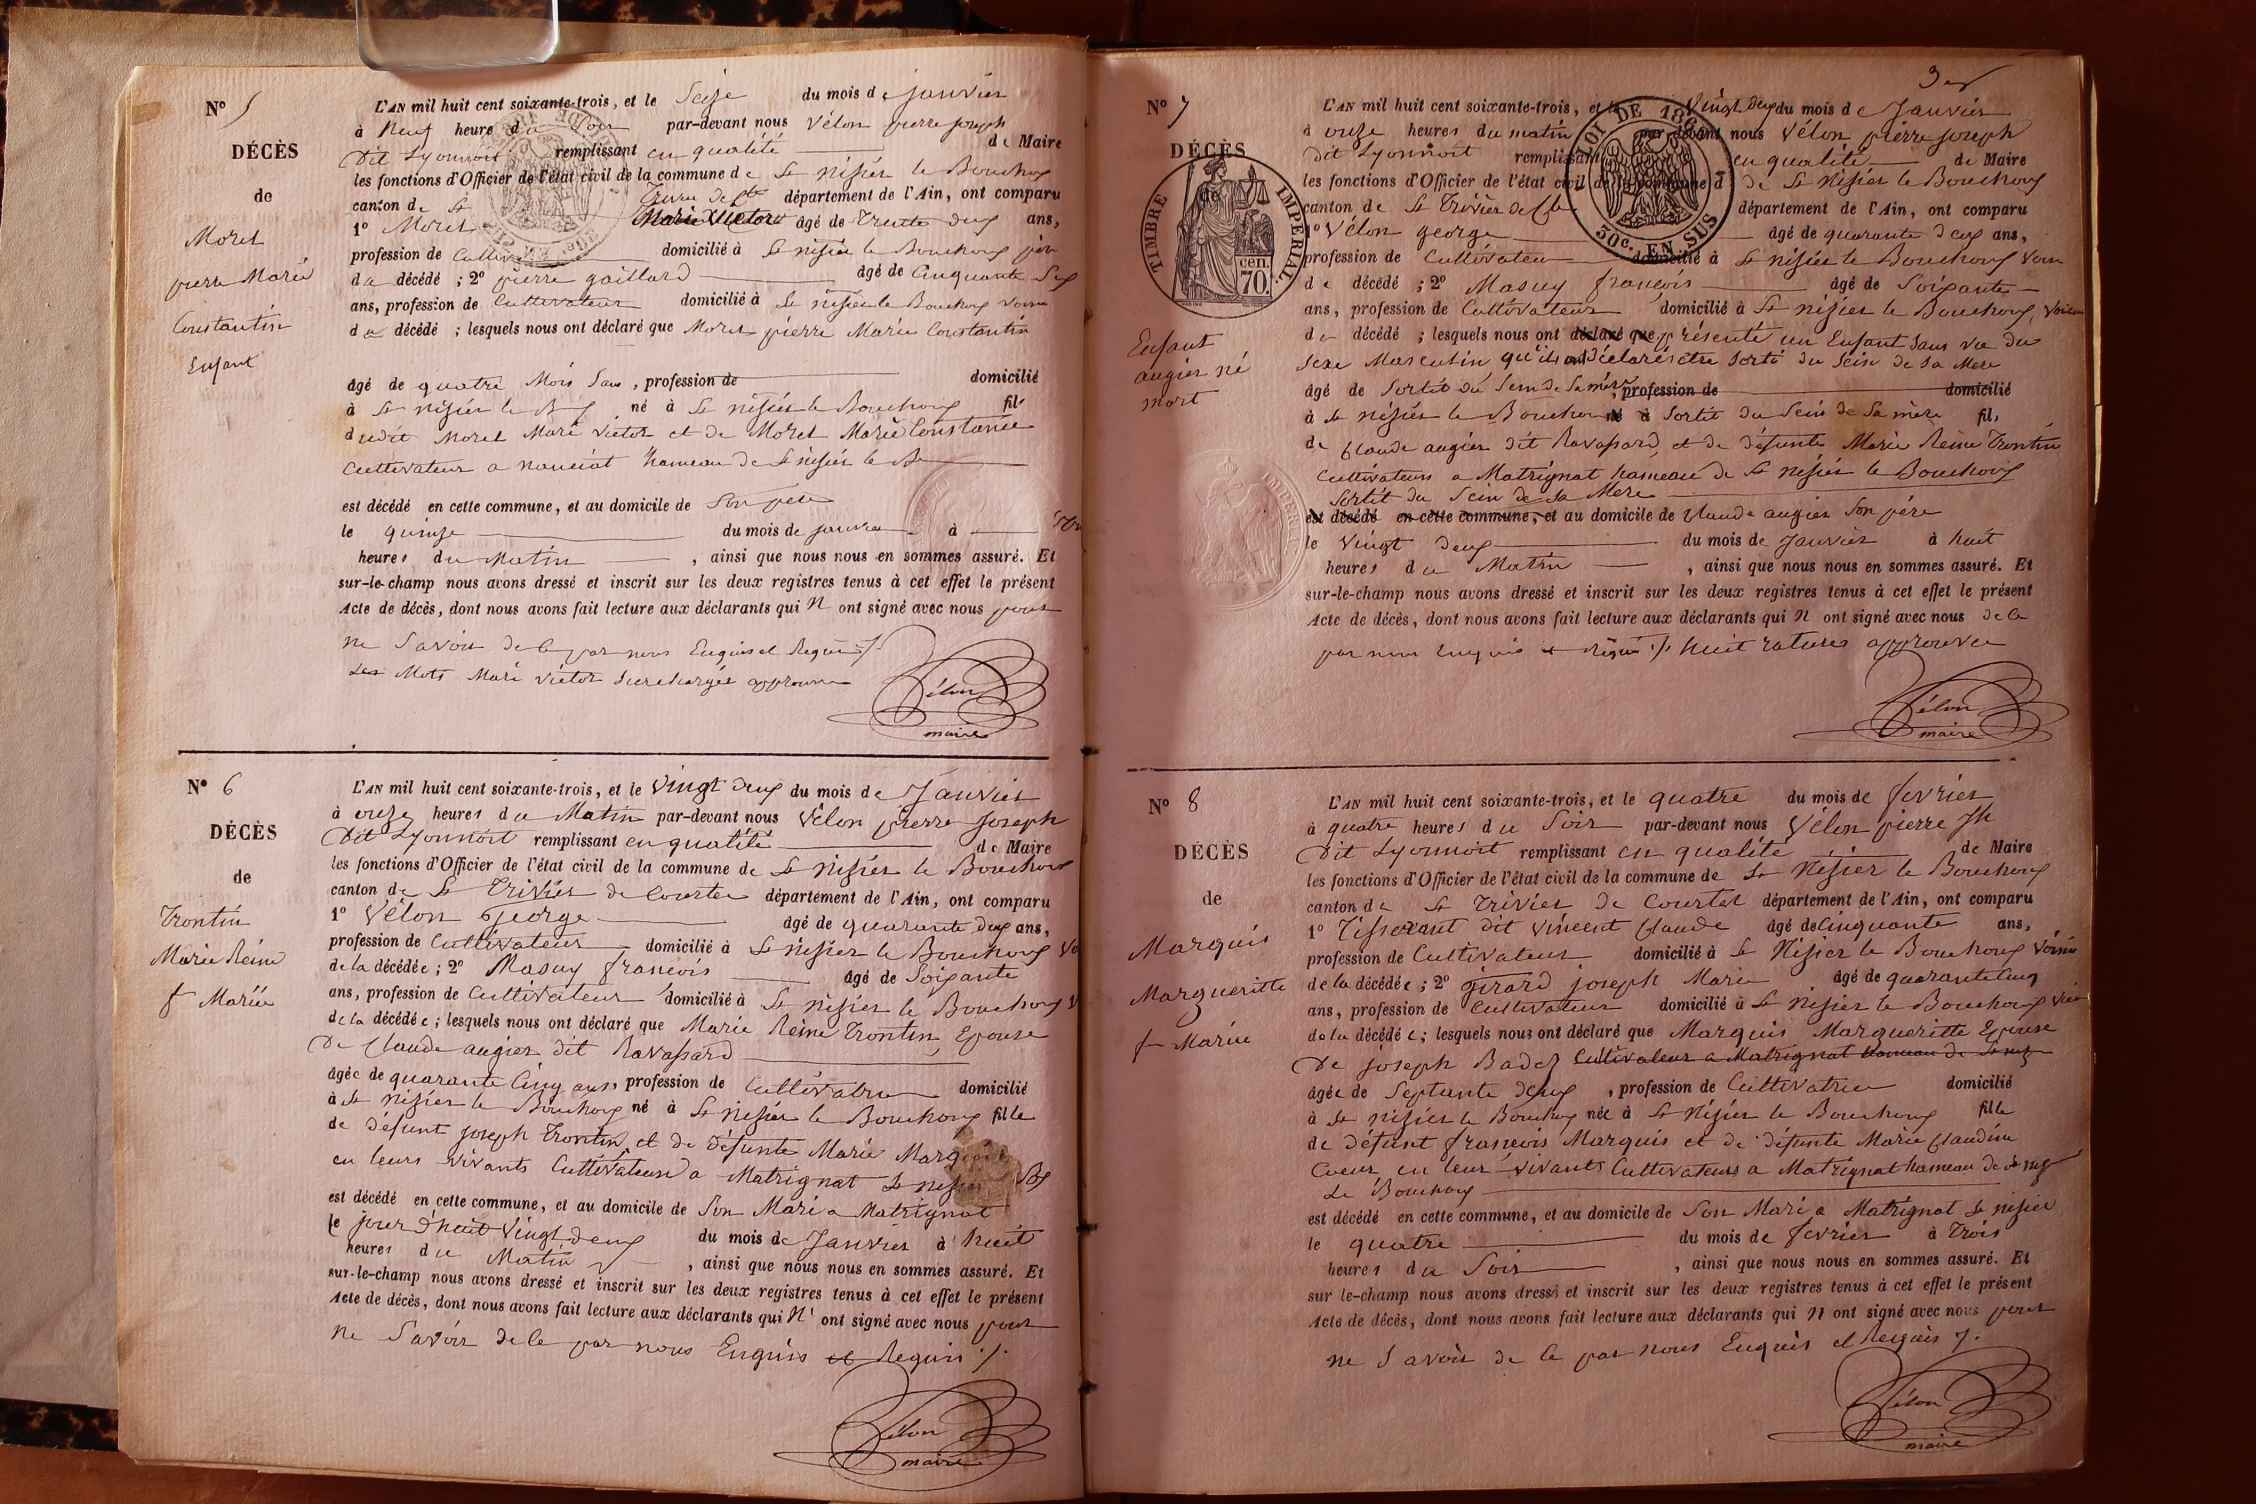 N° 5
DÉCÈS
de
Morel
pierre Marie
Constantin
Enfant
L'AN mil huit cent soixante-trois, et le Seize du mois de janvier
à Neuf heure du Soir par-devant nous Vélon pierre joseph
Dit Lyonnoit remplissant en qualité de Maire
les fonctions d'Officier de l'état civil de la commune de St nisier le Bouchoux
canton de St Trivier de Ctes département de l'Ain, ont comparu
1° Morel Marie Victor âgé de Trente deux ans,
profession de Cultivateur domicilié à St nisier le Bouchoux père
du décédé ; 2° pierre gaillard âgé de Cinquante Six
ans, profession de Cultivateur domicilié à St nisier le Bouchoux voisin
du décédé ; lesquels nous ont déclaré que Morel pierre Marie Constantin
âgé de quatre Mois Sans, profession de domicilié
à St nisier le Bx né à St nisier le Bouchoux fils
dudit Morel Marie Victor et de Morel Marie Constance
Cultivateur a hameau de St nisier le Bx
est décédé en cette commune, et au domicile de Son père
le quinze du mois de janvier à
heures du Matin , ainsi que nous nous en sommes assuré. Et
sur-le-champ nous avons dressé et inscrit sur les deux registres tenus à cet effet le présent
Acte de décès, dont nous avons fait lecture aux déclarants qui N ont signé avec nous pour
ne Savoir de ce par nous Enquis et Requis ./.
Les Mots Marie Victor Surchargés approuvés
Vélon
maire
N° 6
DÉCÈS
de
Trontin
Marie Reine
f Mariée
L'AN mil huit cent soixante-trois, et le Vingt deux du mois de Janvier
à onze heures du Matin par-devant nous Vélon pierre joseph
Dit Lyonnoit remplissant en qualité de Maire
les fonctions d'Officier de l'état civil de la commune de St nisier le Bouchoux
canton de St Trivier de Courtes département de l'Ain, ont comparu
1° Vélon George âgé de quarante deux ans,
profession de Cultivateur domicilié à St nisier le Bouchoux Vo
de la décédée ; 2° Masuy francois âgé de Soixante
ans, profession de Cultivateur domicilié à St nisier le Bouchoux V
de la décédée ; lesquels nous ont déclaré que Marie Reine Trontin Epouse
De Claude augier dit Ravassard
âgée de quarante Cinq ans, profession de Cultivatrice domicilié
à St nisier le Bouchoux né à St nisier le Bouchoux fille
de défunt joseph Trontin et de défunte Marie Marquis
en leurs vivants Cultivateurs a Matrignat St nisier Bx
est décédé en cette commune, et au domicile de Son Mari a Matrignat
le jour d'huit Vingt deux du mois de Janvier à huit
heures du Matin , ainsi que nous nous en sommes assuré. Et
sur-le-champ nous avons dressé et inscrit sur les deux registres tenus à cet effet le présent
Acte de décès, dont nous avons fait lecture aux déclarants qui N' ont signé avec nous pour
ne Savoir de ce par nous Enquis et Requis ./.
Vélon
maire
N° 7
DÉCÈS
de
TIMBRE IMPERIAL
70 cen.
Enfant
augier né
mort
LOI DE 1862
30 c. EN SUS
L'AN mil huit cent soixante-trois, et le Vingt deux du mois de Janvier
à onze heures du matin par-devant nous Vélon pierre joseph
dit Lyonnoit remplissant en qualité de Maire
les fonctions d'Officier de l'état civil de la commune d de St Nisier le Bouchoux
canton de St Trivier de Ctes département de l'Ain, ont comparu
1° Vélon george âgé de quarante deux ans,
profession de Cultivateur domicilié à St nisier le Bouchoux Voisin
de décédé ; 2° Masuy françois âgé de Soixante
ans, profession de Cultivateur domicilié à St nisier le Bouchoux, Voisin
de décédé ; lesquels nous ont déclaré que présenté un Enfant Sans vie du
Sexe Masculin qu'ils ont Déclaré être Sorti du Sein de Sa Mere
âgé de Sortit du Sein de Sa mère, profession de domicilié
à St nisier le Bouchoux né à Sortit du Sein de Sa mère fils
de Claude augier dit Ravassard et de défunte Marie Reine Trontin
Cultivateurs a Matrignat hameau de St nisier le Bouchoux
Sortit du Sein de Sa Mere
est décédé en cette commune, et au domicile de Claude augier Son père
le Vingt Deux du mois de Janvier à huit
heures du Matin , ainsi que nous nous en sommes assuré. Et
sur-le-champ nous avons dressé et inscrit sur les deux registres tenus à cet effet le présent
Acte de décès, dont nous avons fait lecture aux déclarants qui N ont signé avec nous de ce
par nous Enquis et Requis ./. huit ratures approuvée
Vélon
maire
N° 8
DÉCÈS
de
Marquis
Marguerite
f Mariée
L'AN mil huit cent soixante-trois, et le quatre du mois de fevrier
à quatre heures du Soir par-devant nous Vélon pierre Jh
Dit Lyonnoit remplissant en qualité de Maire
les fonctions d'Officier de l'état civil de la commune de St Nisier le Bouchoux
canton de St Trivier de Courtes département de l'Ain, ont comparu
1° Tisserant dit Vincent Claude âgé de Cinquante ans,
profession de Cultivateur domicilié à St Nisier le Bouchoux Voisin
de la décédée ; 2° girard joseph Marie âgé de quarante Cinq
ans, profession de Cultivateur domicilié à St nisier le Bouchoux
de la décédée ; lesquels nous ont déclaré que Marquis Marguerite Epouse
De joseph Badez Cultivateur a Matrignat hameau de St
âgée de Septante deux , profession de Cultivatrice domicilié
à St nisier le Bouchoux née à St Nisier le Bouchoux fille
de défunt françois Marquis et de défunte Marie Claudine
Coeur en leur vivants Cultivateurs a Matrignat hameau de St
Le Bouchoux
est décédé en cette commune, et au domicile de Son Mari a Matrignat St nisier
le quatre du mois de fevrier à Trois
heures du Soir , ainsi que nous nous en sommes assuré. Et
sur le-champ nous avons dressé et inscrit sur les deux registres tenus à cet effet le présent
Acte de décès, dont nous avons fait lecture aux déclarants qui N ont signé avec nous pour
ne Savoir de ce par nous Enquis et Requis ./.
Vélon
maire